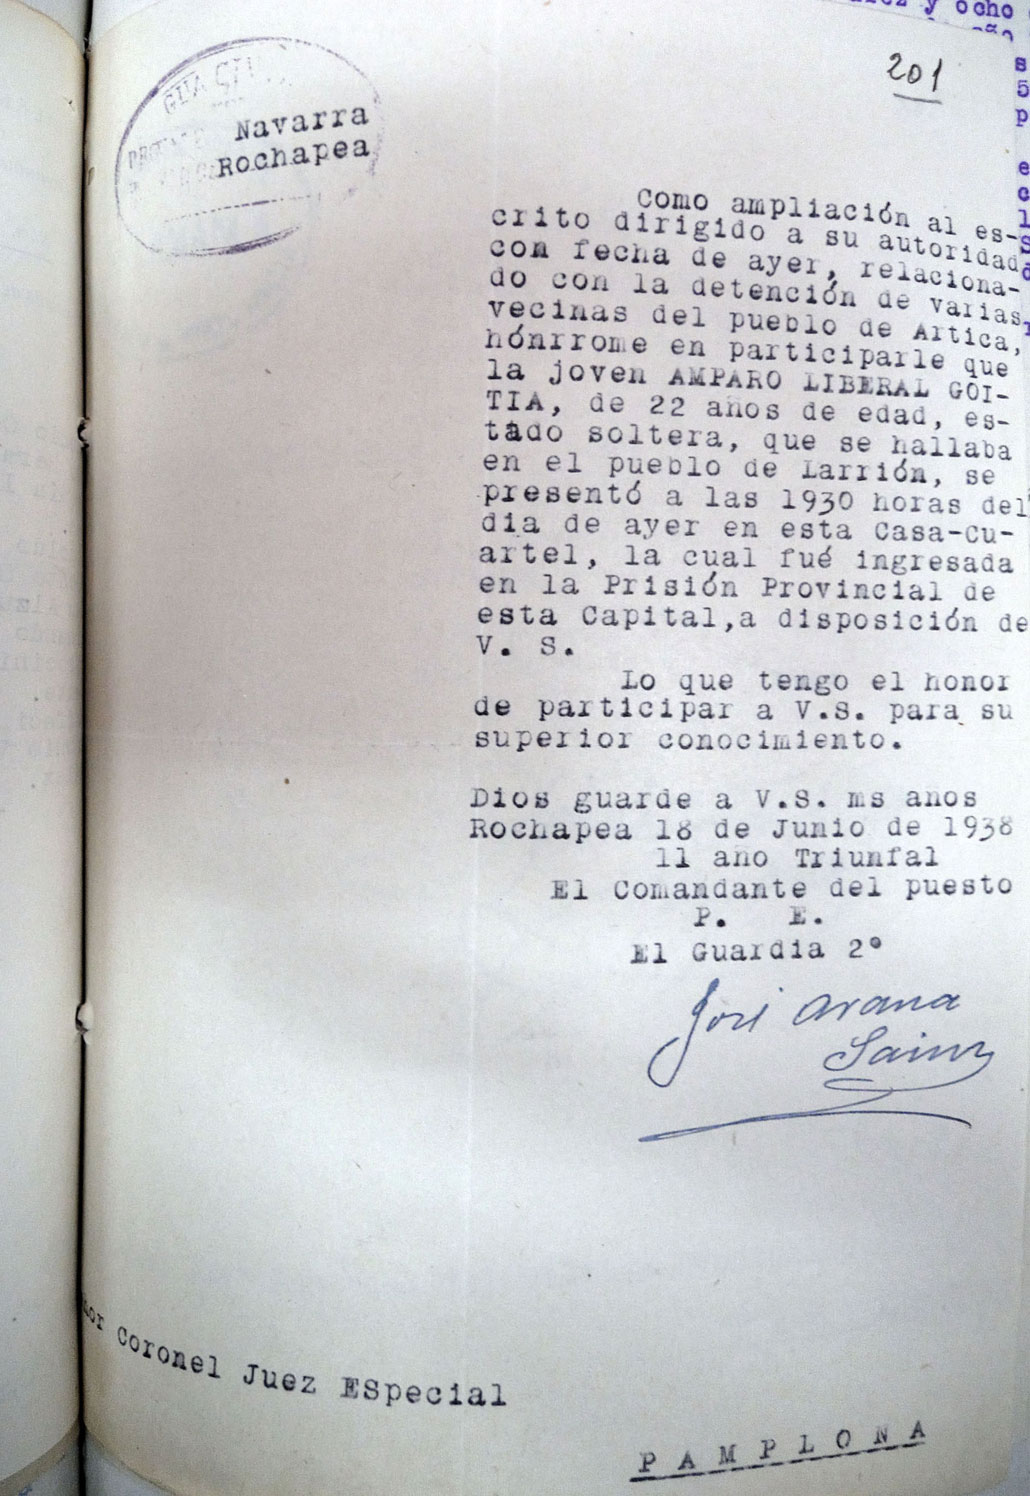 y ocho
201
GUA CIV
Navarra
Rochapea
Como ampliación al es-
crito dirigido a su autoridad
con fecha de ayer, relaciona-
do con la detención de varias
vecinas del pueblo de Artica,
hónrrome en participarle que
la joven AMPARO LIBERAL GOI-
TIA, de 22 años de edad, es-
tado soltera, que se hallaba
en el pueblo de Larrión, se
presentó a las 1930 horas del
dia de ayer en esta Casa-Cu-
artel, la cual fué ingresada
en la Prisión Provincial de
esta Capital,a disposición de
V. S.
Lo que tengo el honor
de participar a V.S. para su
superior conocimiento.
Dios guarde a V.S. ms anos
Rochapea 18 de Junio de 1938
11 año Triunfal
El Comandante del puesto
P. E.
El Guardia 2º
José Arana
Sainz
Coronel Juez ESpecial
PAMPLONA